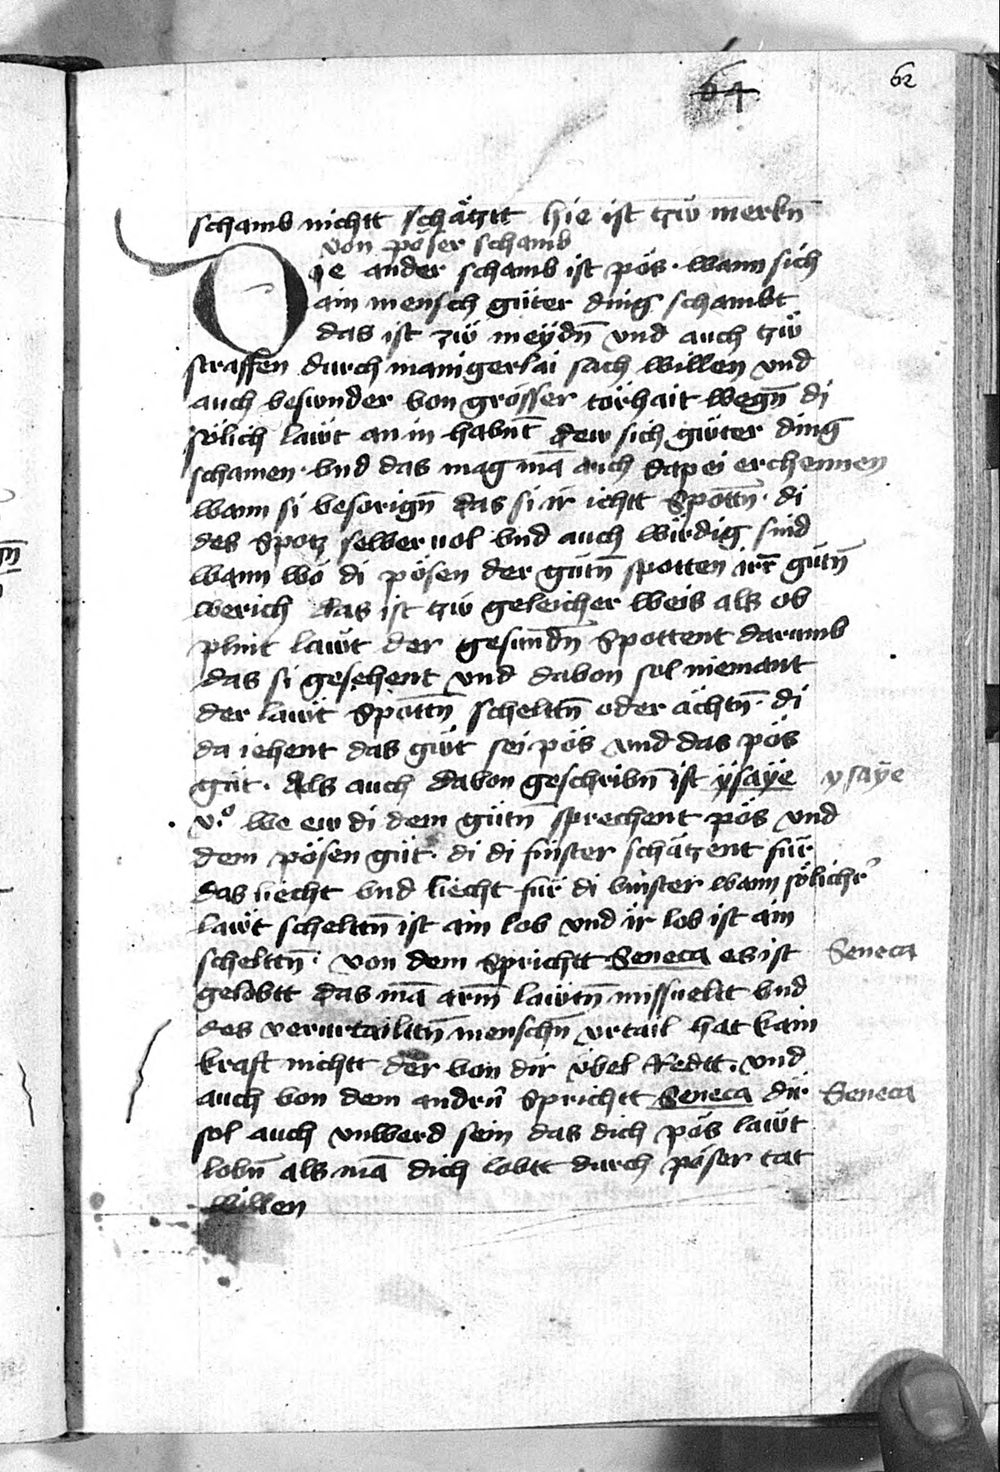 62
64
schamb nichtt schätztt hie ist tzw merkn̄
von pöser schamb
Die ander schamb ist pös · wann sich
ain mensch güter ding schambt
das ist zw meÿdn̄ vnd auch tzw
straffen durch manigerlai sach willen vnd
auch besunder von grösser törhait wegn̄ di
sölich läwt an in habnt̄ dew sich gẅter ding
schamen · vnd das mag mā auch dapei erchennen
wann si besorign̄ das si ir ichtt Spottn̄ · di
des Spotz selber uol vnd auch wirdig sind
wann wö di pösen der gütn̄ spotten irr̄ gütn̄
werich das ist tzw geleicher weis als ob
plint läwt der gesundn̄ Spottent darumb
das si gesehent vnd dauon sol niemant
der läwt Spöttn̄ scheltn̄ oder ächtn̄ · di
da iehent das gẅt sei pös vnd das pös
güt · Als auch dauon geschribn̄ ist ÿsaÿe
ysaÿe
v.º we ew di dem gütn̄ sprechent pös vnd
dem pösen güt · di di finster schätzent für
das liecht vnd liecht für di vinster wann sölicher
läwt scheltn̄ ist ain lob vnd ir lob ist ain
scheltn̄ · von dem Sprichtt Seneca es ist
Seneca
gelobtt das mā arm̄ läwtn̄ missuelt vnd
des verurtailttn̄ menschn̄ vrtail hat kain
kraft nichtt der von dir übel Redtt · vnd
auch von dem andrn̄ Sprichtt Seneca dir
Seneca
sol auch vnwerd sein das dich pös läwt
lobn̄ als mā dich lobtt durch pöser tat
willen